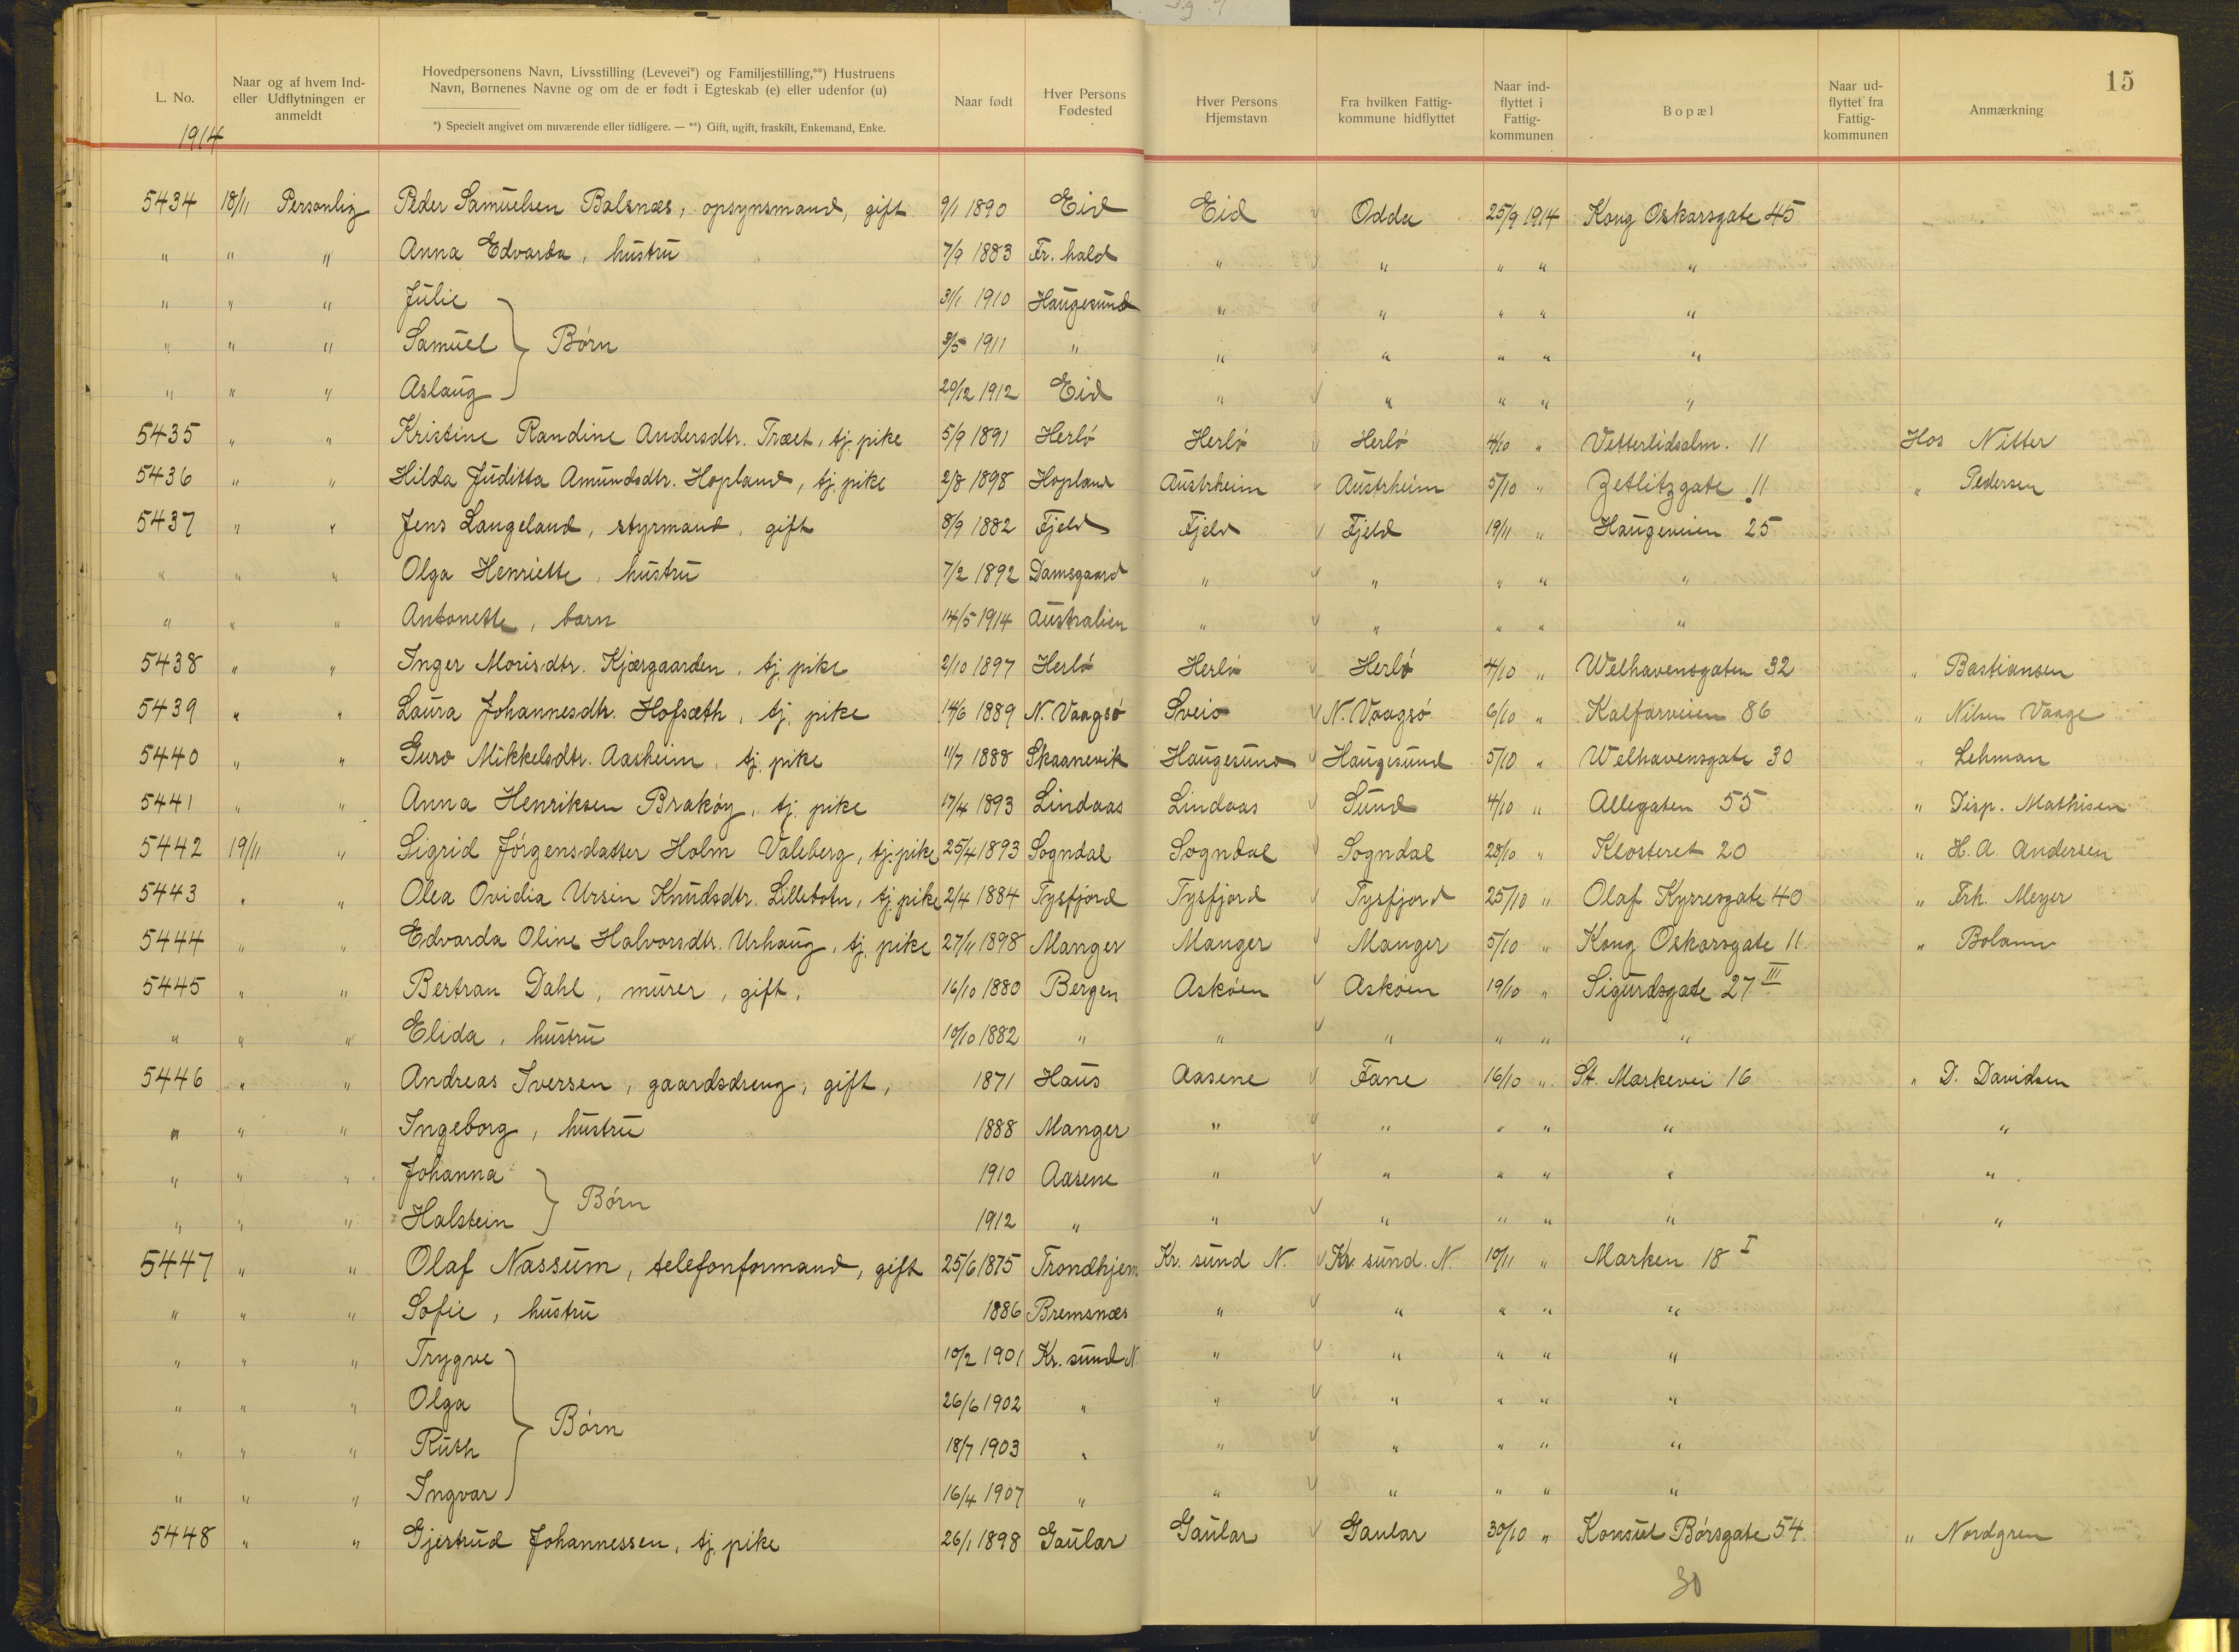 15
L. No.
Naar og af hvem Ind- eller Udflytningen er anmeldt
Hovedpersonens Navn, Livsstilling (Levevei*) og Familjestilling,**) Hustruens Navn, Børnenes Navne og om de er født i Egteskab (e) eller udenfor (u)
*) Specielt angivet om nuværende eller tidligere. — **) Gift, ugift, fraskilt, Enkemand, Enke.
Naar født
Hver Persons Fødested
Hver Persons Hjemstavn
Fra hvilken Fattigkommune hidflyttet
Naar indflyttet i Fattigkommunen
Bopæl
Naar udflyttet fra Fattigkommunen
Anmærkning
1914
5434 18/11 Personlig Peder Samuelsen Balsnæs, opsynsmand, gift 9/1 1890 Eid Eid Odda 25/9 1914 Kong Oskarsgate 45
" " " Anna Edvarda, hustru 7/9 1883 Fr. hald " " " " "
" " " Julie 31/1 1910 Haugesund " " " " "
" " " Samuel } Børn 3/5 1911 " " " " " "
" " " Aslaug 20/12 1912 Eid " " " " "
5435 " " Kristine Randine Andersdtr. Træet, tj. pike 5/9 1891 Herlø Herlø Herlø 4/10 " Vetterlidsalm. 11 Hos Nitter
5436 " " Hilda Juditta Amundsdtr. Hopland, tj. pike 2/8 1898 Hopland Austrheim Austrheim 5/10 " Zetlitzgate 11 " Pedersen
5437 " " Jens Langeland, styrmand, gift 8/9 1882 Fjeld Fjeld Fjeld 19/11 " Haugeveien 25
" " " Olga Henriette, hustru 7/2 1892 Damsgaard " " " " "
" " " Antonette, barn 14/5 1914 Australien " " " " "
5438 " " Inger Morisdtr. Kjærgaarden, tj. pike 2/10 1897 Herlø Herlø Herlø 4/10 " Welhavensgaten 32 " Bastiansen
5439 " " Laura Johannesdtr. Hofsæth, tj. pike 14/6 1889 N. Vaagsø Sveio N. Vaagsø 6/10 " Kalfarveien 86 " Nilsen Vaage
5440 " " Guro Mikkelsdtr. Aasheim, tj. pike 11/7 1888 Skaanevik Haugesund Haugesund 5/10 " Welhavensgate 30 " Lehman
5441 " " Anna Henriksen Brakøy, tj. pike 17/4 1893 Lindaas Lindaas Sund 4/10 " Allegaten 55 " Disp. Mathisen
5442 19/11 " Sigrid Jørgensdatter Holm Valeberg, tj. pike 25/4 1893 Sogndal Sogndal Sogndal 28/10 " Klosteret 20 " H. A. Andersen
5443 " " Olea Ovidia Ursin Knudsdtr. Lillebotn, tj. pike 2/4 1884 Tysfjord Tysfjord Tysfjord 25/10 " Olaf Kyrresgate 40 " Frk. Meyer
5444 " " Edvarda Oline Halvorsdtr. Urhaug, tj. pike 27/11 1898 Manger Manger Manger 5/10 " Kong Oskarsgate 11. " Bolann
5445 " " Bertran Dahl, murer, gift, 16/10 1880 Bergen Askøen Askøen 19/10 " Sigurdsgate 27 III
" " " Elida, hustru 10/10 1882 " " " " " "
5446 " " Andreas Iversen, gaardsdreng, gift, 1871 Haus Aasene Fane 16/10 " St. Markevei 16 " D. Davidsen
" " " Ingeborg, hustru 1888 Manger " " " " " "
" " " Johanna 1910 Aasene " " " " " "
" " " Halstein } Børn 1912 " " " " " " "
5447 " " Olaf Nassum, telefonformand, gift 25/6 1875 Trondhjem Kr. sund N. Kr. sund. N. 10/11 " Marken 18 I
" " " Sofie, hustru 1886 Bremsnæs " " " " "
" " " Trygve 10/2 1901 Kr. sund N. " " " " "
" " " Olga 26/6 1902 " " " " " "
" " " Ruth } Børn 18/7 1903 " " " " " "
" " " Ingvar 16/4 1907 " " " " " "
5448 " " Gjertrud Johannessen, tj. pike 26/1 1898 Gaular Gaular Gaular 30/10 " Konsul Børsgate 54. " Nordgren
30